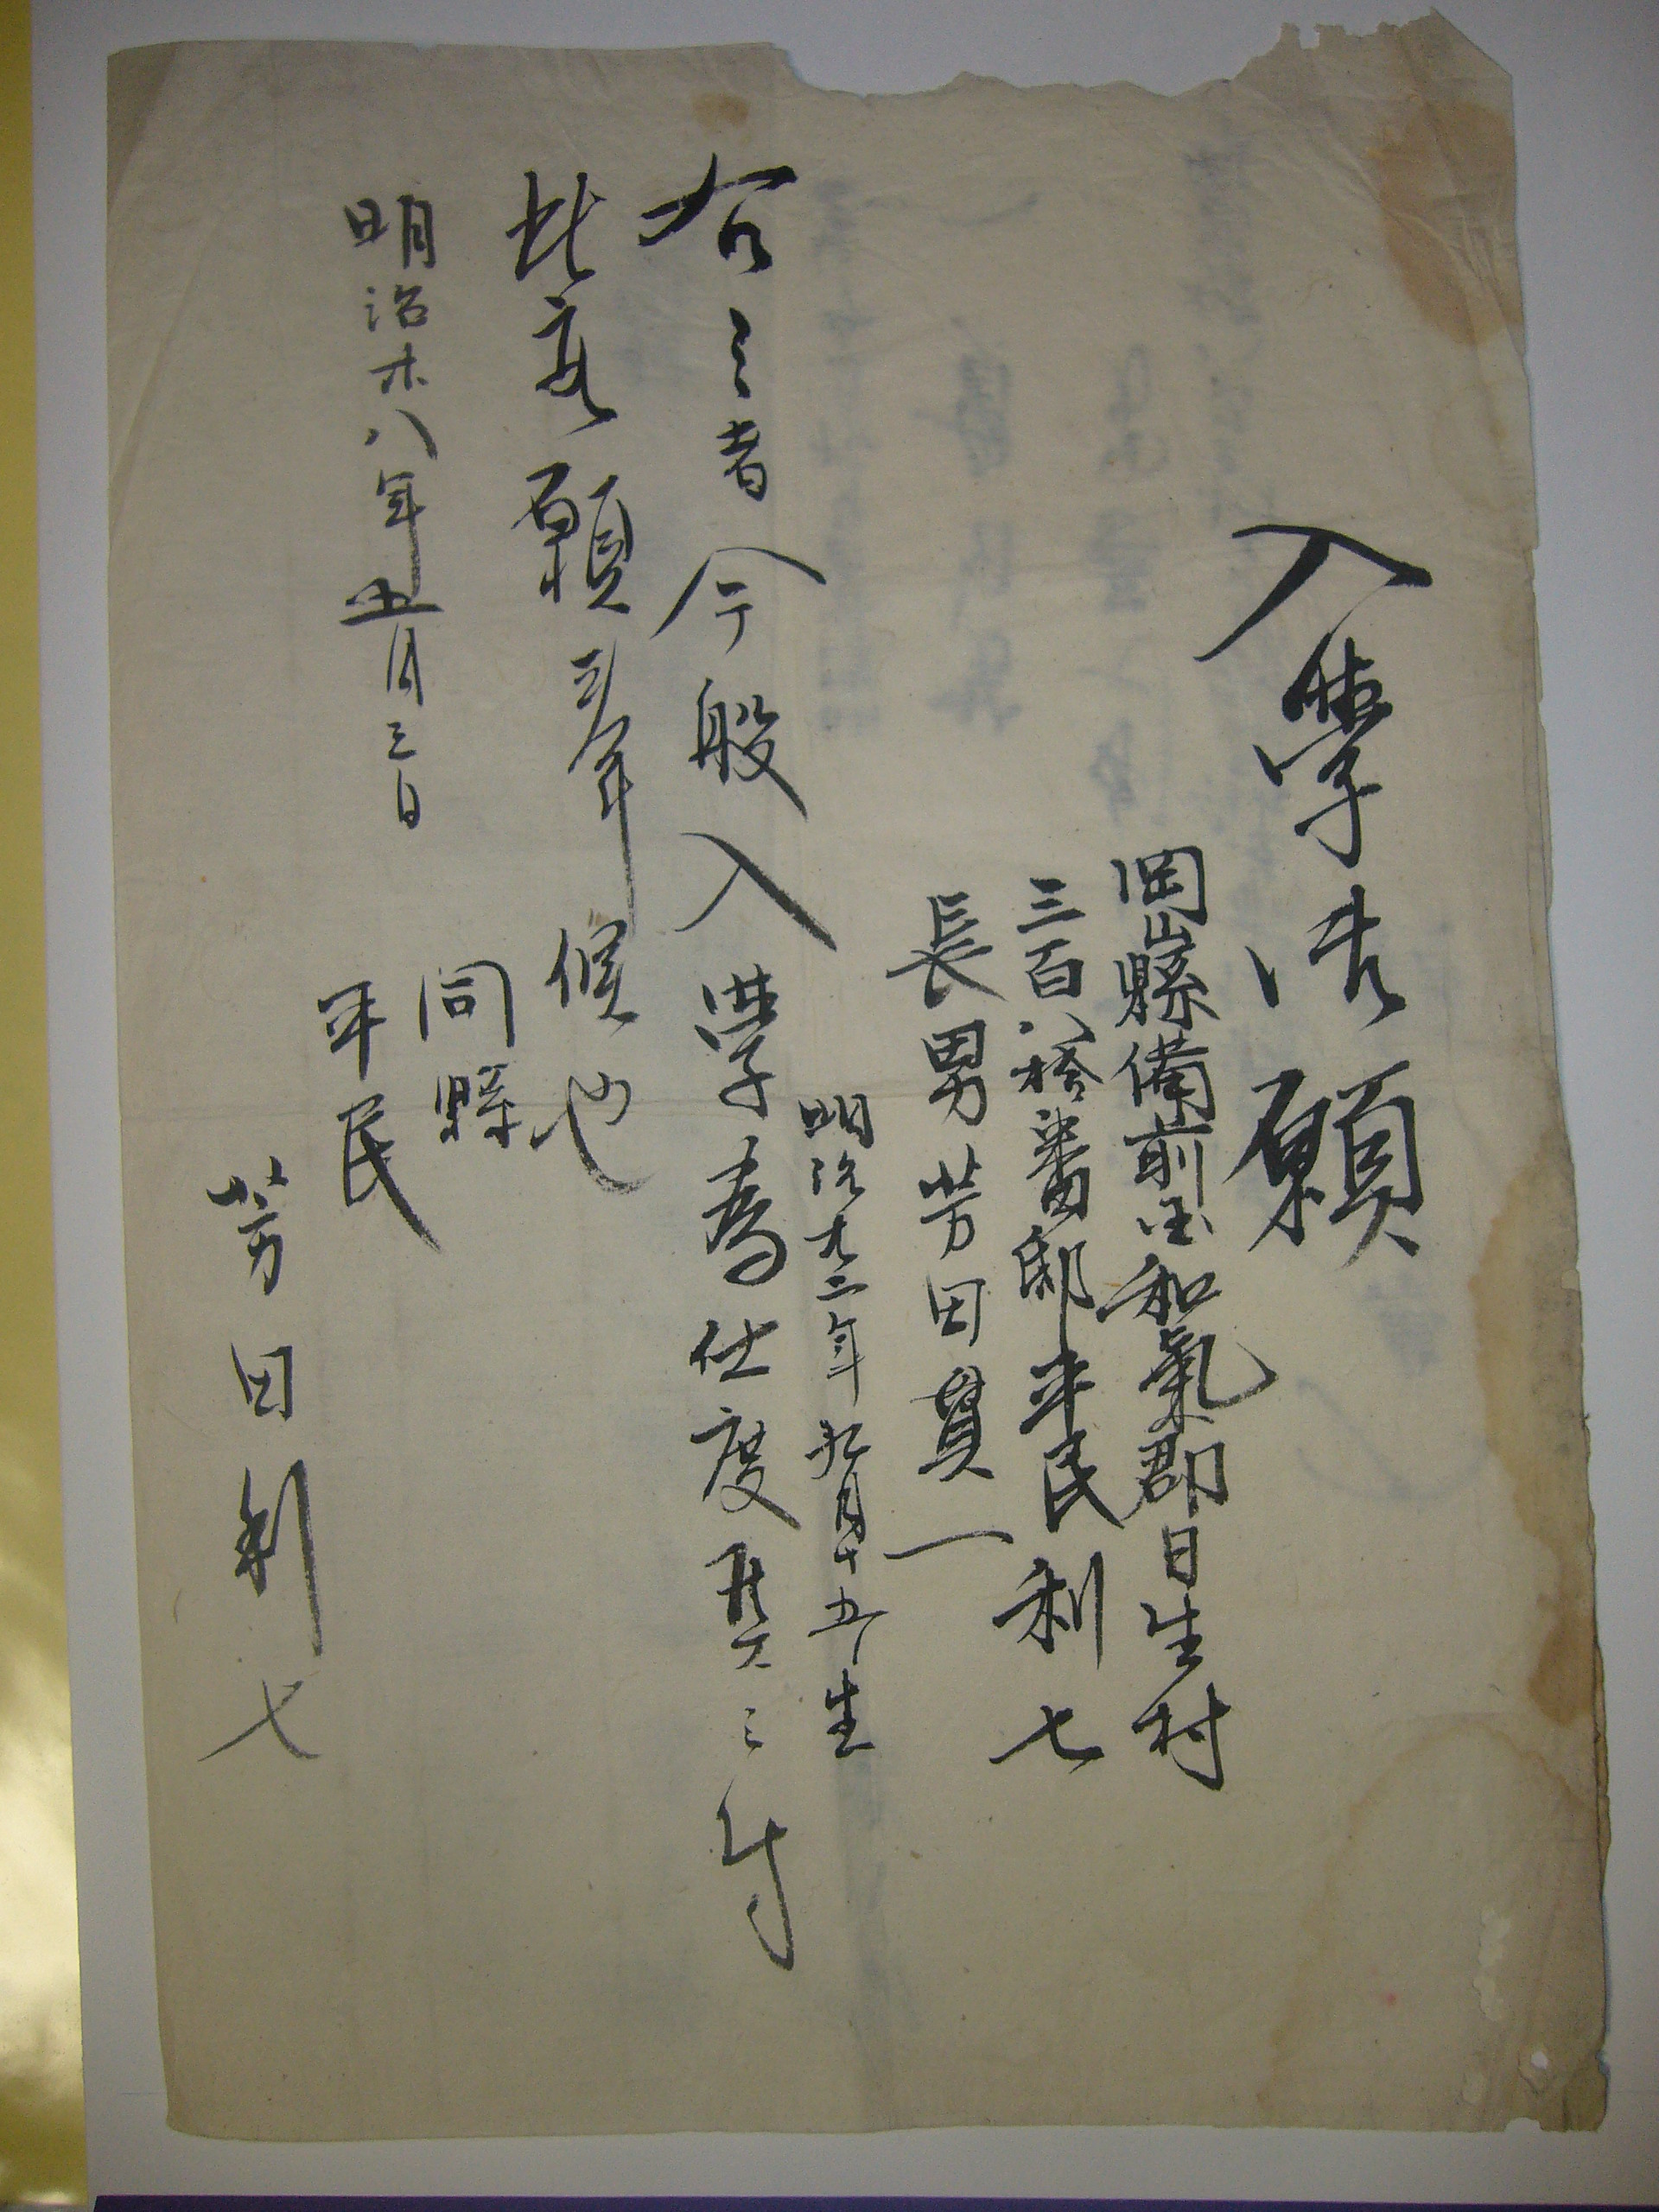 入學御願
岡山縣備前国和氣郡日生村
三百八拾番邸平民利七
長男芳田貫一
明治廿二年九月十五日生
右之者今般入學為仕度候ニ付
此段願上候也
明治廿八年五月三日
同縣
平民
芳田利七